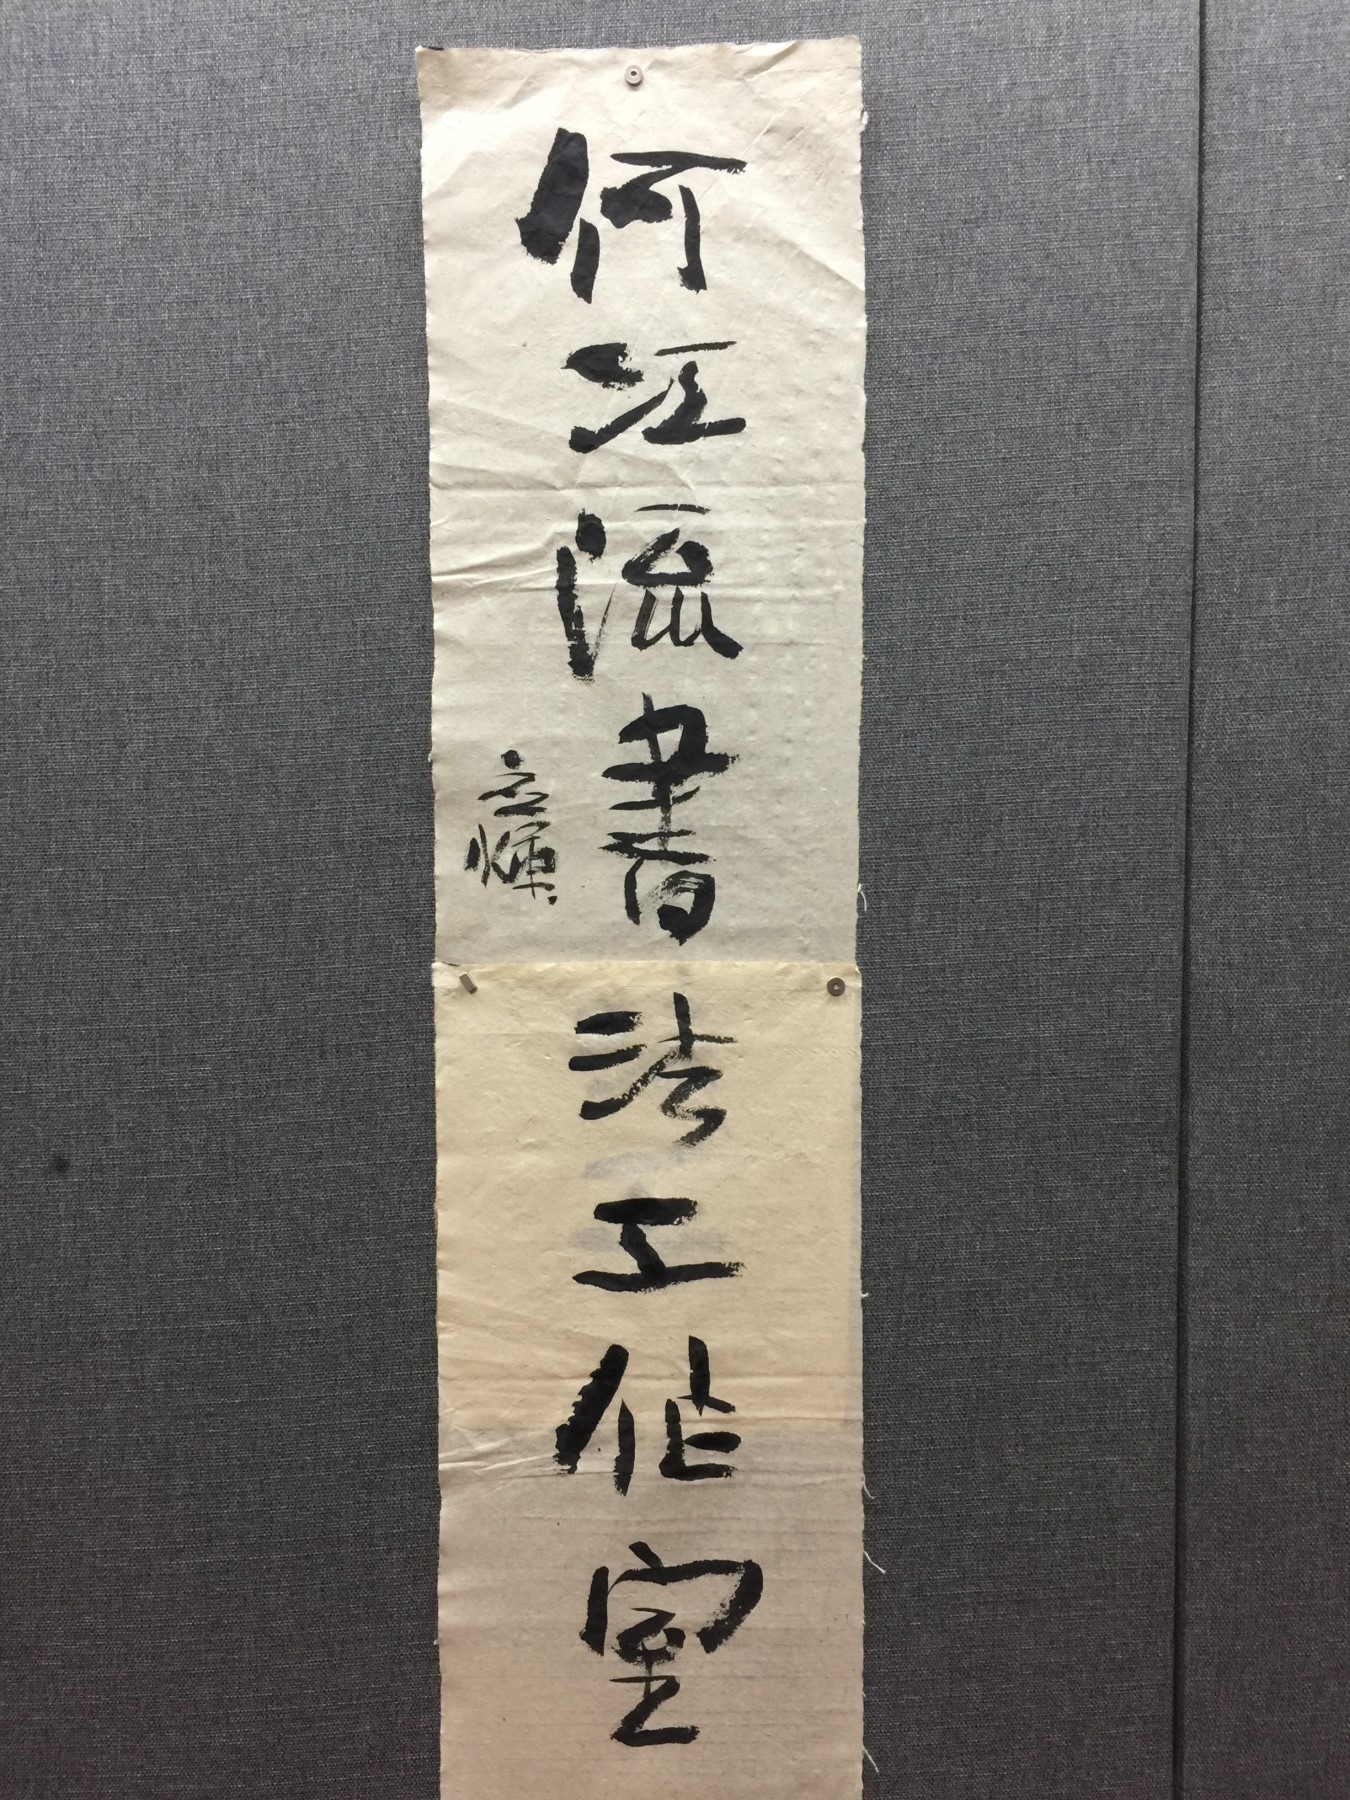 何江流書法工作室
立輝